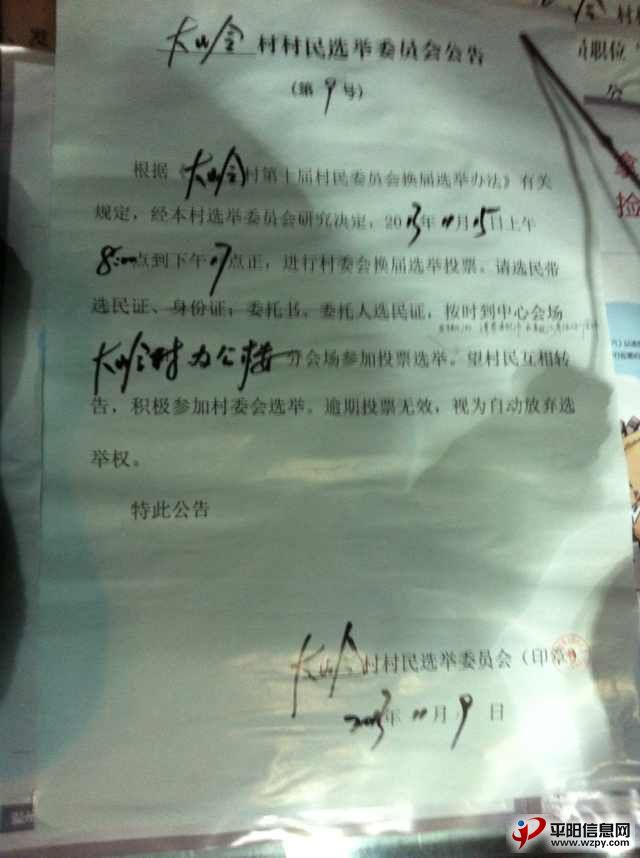 大岭村村民选举委员会公告
（第9号）
根据《大岭村第十届村民委员会换届选举办法》有关
规定，经本村选举委员会研究决定，2013年11月15日上午
8:00点到下午17点正，进行村委会换届选举投票。请选民带
选民证、身份证；委托书、委托人选民证，按时到中心会场
大岭村办公楼分会场参加投票选举。望村民互相转
告，积极参加村委会选举。逾期投票无效，视为自动放弃选
举权。
特此公告
大岭村村民选举委员会（印章）
2013年11月9日
发
村
职位
拿
捡
平阳信息网
www.wzpy.com